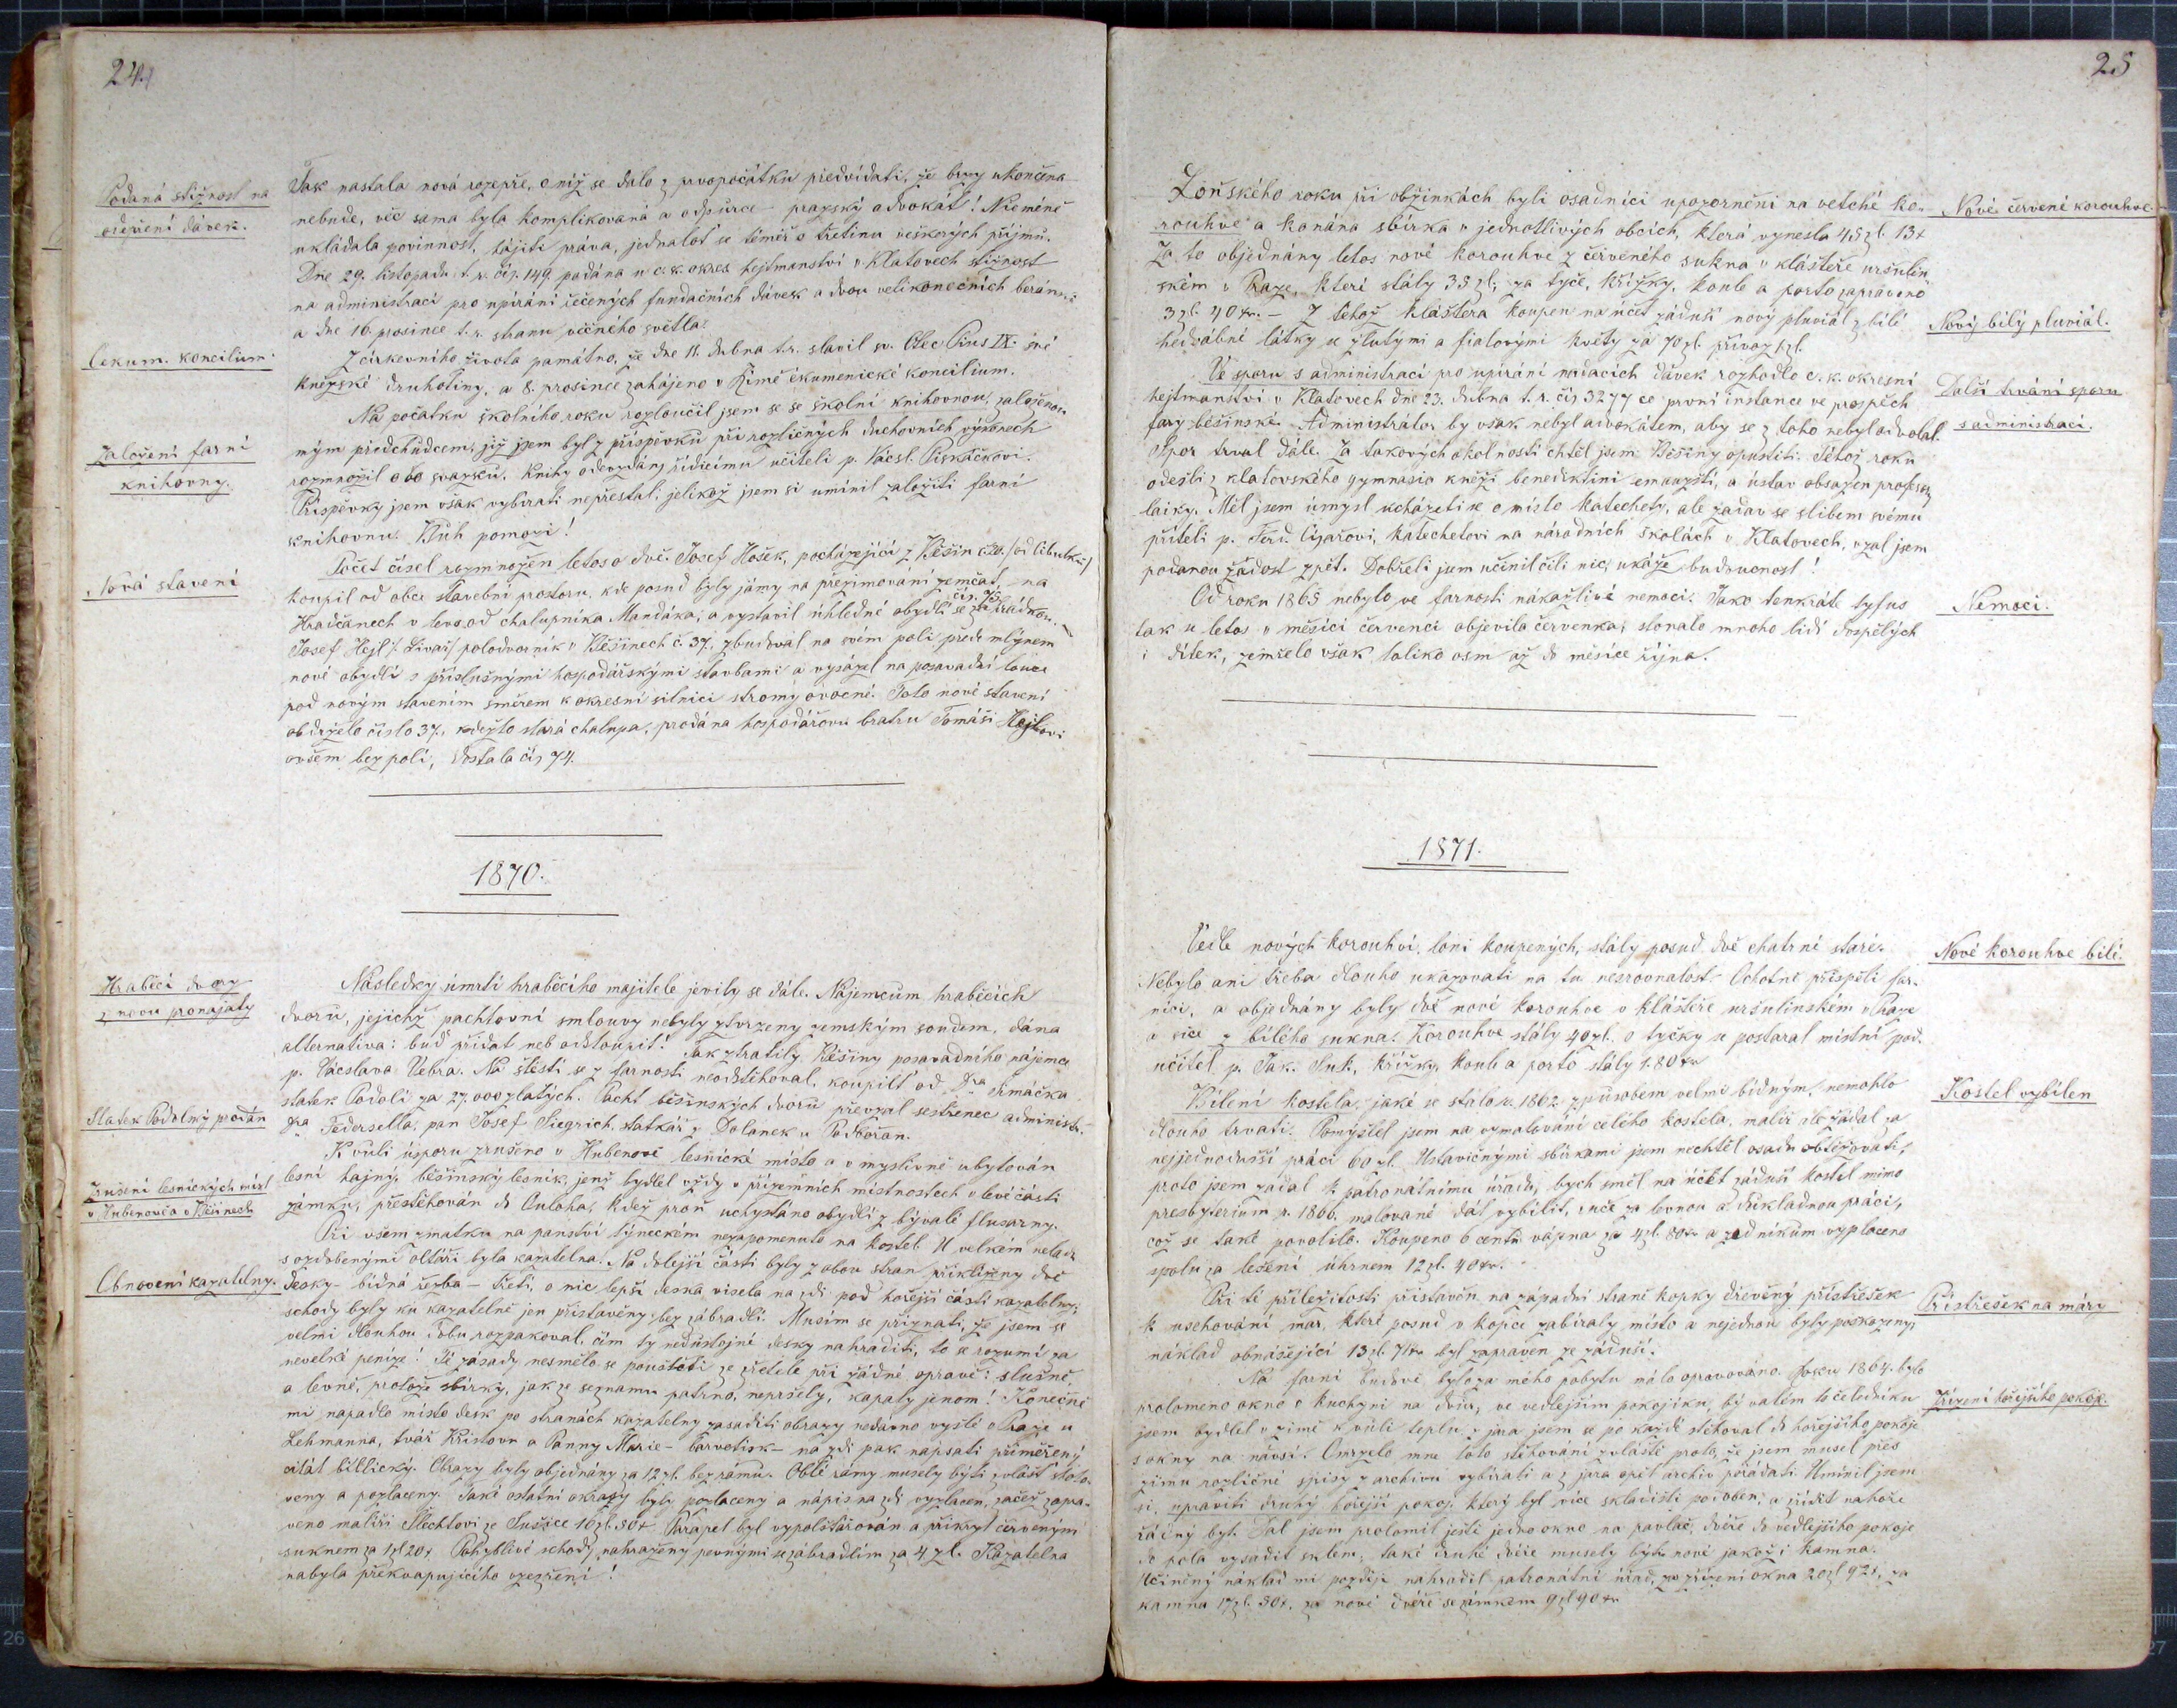 24.
Podaná stížnost na
odepření dávek.
Tak nastala nová rozepře, o níž se dalo z prvopočátku předvídati, že brzy ukončena
nebude, věc sama byla komplikovaná a odpůrce – pražský advokát! Nicméně
ukládala povinnost, hájiti práva, jednaloť se téměř o třetinu veškerých příjmů.
Dne 29. listopadu t. r. čís. 149 podána u c. k. okres. hejtmanství v Klatovech stížnost
na administraci pro upírání řečených fundačních dávek a dvou velikonočních beránků
a dne 16. prosince t. r. stranu věčného světla.
Oekum. koncilium.
Z církevního života památno, že dne 11. dubna t. r. slavil sv. Otec Pius IX. své
kněžské druhotiny, a 8. prosince zahájeno v Římě ékumenické koncilium.
Založení farní
knihovny.
Na počátku školního roku rozloučil jsem se se školní knihovnou, založenou
mým předchůdcem, jíž jsem byl z příspěvků při rozličných duchovních výkonech
rozmnožil o svazků. Knihy odevzdány řídícímu učiteli p. Vácsl. Piskáčkovi.
Příspěvky jsem však vybírati nepřestal, jelikož jsem si umínil založiti farní
knihovnu. Bůh pomozi!
Nová stavení
Počet čísel rozmnožen letos o dvě. Josef Hošek, pocházející z Běšin č. 20. /od
koupil od obce stavební prostoru, kde posud byly jámy na přezimovaní zemčat, na
Hradčanech v levo od chalupníka Mandáka, a vystavil úhledné obydlí čís. 75 se zahrádkou. –
Josef Hejl /: Livaš/ polodvorník v Běšinech č. 37., zbudoval na svém poli přede mlýnem
nové obydlí s příslušnými hospodářskými stavbami a vysázel na posavadní louce
pod novým stavením směrem k okresní silnici stromy ovocné. Toto nové stavení
obdrželo číslo 37., kdežto stará chalupa, prodána hospodářovu bratru Tomáši Hejlovi
ovšem bez polí, dostala čís 74.
1870.
Hraběcí dvory
znovu pronajaty
Následky úmrtí hraběcího majitele jevily se dále. Nájemcům hraběcích
dvorů, jejichž pachtovní smlouvy nebyly ztvrzeny zemským soudem, dána
alternativa: buď přidat neb odstoupit! Tak ztratily Běšiny posavadního nájemce
p. Václava Vebra. Na štěstí se z farnosti neodstěhoval, koupilť od Dra Šimáčka
Statek Podolský prodán
statek Podolí za 27.000 zlatých. Pacht běšinských dvorů převzal sestřenec administr.
Dra Federsella, pan Josef Siegrich, statkář z Dolanek u Podbořan.
Zrušení lesnických míst
v Hubenově a v Běšinech
K vůli úsporu zrušeno v Hubenově lesnické místo a v myslivně ubytován
lesní hajný, běšinský lesník, jenž bydlel vždy v přízemních místnostech v levé části
zámku, přestěhován do Ouloha, kdež proň uchystáno obydlí z bývalé flusarny.
Obnovení kazatelny.
Při všem zmatku na panství týneckém nezapomenuto na kostel. U velkém neladu
s ozdobenými oltáři byla kazatelna. Na dolejší části byly z obou stran přiklíženy dvě
desky – bídná řezba – třetí, o nic lepší deska visela na zdi pod hořejší částí kazatelny;
schody byly ku kazatelně jen přistavěny bez zábradlí. Musím se přiznati, že jsem se
velmi dlouhou dobu rozpakoval, čím ty nedůstojné desky nahraditi, to se rozumí za
nevelké peníze! Té zásady nesmělo se pouštěti ze zřetele při žádné opravě: slušně
a levně, protože sbírky, jak ze seznamu patrno, nepršely, kapaly jenom! Konečně
mi napadlo místo desk po stranách kazatelny zasaditi obrazy nedávno vyšlé v Praze u
Lehmanna, tvář Kristovu a Panny Marie – barvotisk – na zdi pak napsati přiměřený
citát biblický. Obrazy byly objednány za 12 zl. bez rámů. Oblé rámy musely býti zvlášť zhoto-
veny a pozlaceny. Také ostatní okrasy byly pozlaceny a nápis na zdi vyzlacen, začež zapra-
veno malíři Šlechtovi ze Sušice 16 zl. 50 x. Parapet byl vypolštářován a přikryt červeným
suknem za 1 zl 20 x. Pohyblivé schody nahraženy pevnými se zábradlím za 4 zl. Kazatelna
nabyla překvapujícího vzezření!
25
Loňského roku při obžinkách byli osadníci upozorněni na vetché ko-
Nové červené korouhve.
rouhve a konána sbírka v jednotlivých obcích, která vynesla 45 zl. 13 x
Za to objednány letos nové korouhve z červeného sukna v klášteře uršulin-
ském v Praze, které stály 35 zl., za tyče, křížky, koule a porto zapraveno
3 zl. 40 kr. – Z téhož kláštera koupen na účet záduší nový pluviál z bílé
Nový bílý pluviál.
hedvábné látky se žlutými a fialovými květy za 70 zl. přívoz 1 zl.
Ve sporu s administrací pro upírání nadacích dávek rozhodlo c. k. okresní
Další trvání sporu
s administrací.
hejtmanství v Klatovech dne 23. dubna t. r. čís 3277 co první instance ve prospěch
fary běšinské. Administrátor by však nebyl advokátem, aby se z toho nebyl odvolal.
Spor trval dále. Za takových okolností chtěl jsem Běšiny opustiti. Téhož roku
odešli z klatovského gymnasia kněží benediktini emauzští, a ústav obsazen professory
laiky. Měl jsem úmysl ucházeti se o místo katechety, ale zadav se slibem svému
příteli p. Ferd. Cízařovi, katechetovi na národních školách v Klatovech, vzal jsem
podanou žádost zpět. Dobřeli jsem učinil čili nic, ukáže budoucnost!
Nemoci.
Od roku 1865 nebylo ve farnosti nákažlivé nemoci. Jako tenkráte tyfus
tak u letos v měsíci červenci objevila červenka; stonalo mnoho lidí dospělých
i dítek, zemřelo však toliko osm až do měsíce října.
1871.
Vedle nových korouhví, loni koupených, stály posud dvě chatrné staré.
Nové korouhve bílé.
Nebylo ani třeba dlouho ukazovati na tu nesrovnalost. Ochotně přispěli far-
níci, a objednány byly dvě nové korouhve v klášteře uršulinském v Praze
a sice z bílého sukna. Korouhve stály 40 zl. o tyčky se postaral místní pod-
učitel p. Jak. Suk, křížky, koule a porto stály 1.80 kr
Kostel vybílen
Bílení kostela, jaké se stálo r. 1862 způsobem velmi bídným, nemohlo
dlouho trvati. Pomýšlel jsem na vymalování celého kostela, malíř ale žádal za
nejjednodušší práci 60 zl. Ustavičnými sbírkami jsem nechtěl osadu obtěžovati,
proto jsem žádal k patronátnímu úřadu, bych směl na účet záduší kostel mimo
presbyterium r. 1866. malované dát vybílit, ruče za levnou a důkladnou práci,
což se také povolilo. Koupeno 6 centů vápna za 4 zl. 80 kr a zedníkům vyplaceno
spolu za lešení úhrnem 12 zl. 40 kr.
Přístřešek na máry
Při té příležitosti přistavěn na západní straně kopky dřevěný přístřešek
k uschování mar, které posud v kopce zabíraly místo a nejednou byly poškozeny;
náklad obnášející 13 zl. 71 kr byl zapraven ze záduší.
Na farní budově bylo za mého pobytu málo opravováno. Roku 1864. bylo
Zřízení hořejšího pokoje.
prolomeno okno v kuchyni na dvůr, ve vedlejším pokojíku, bývalém to čeledníku
jsem bydlel v zimě k vůli teplu, z jara jsem se po každé stěhoval do hořejšího pokoje
s okny na návsi. Omrzelo mne toto stěhování zvláště proto, že jsem musel přes
zimu rozličné spisy z archivu vybírati a z jara opět archiv pořádati. Umínil jsem
si, upraviti druhý hořejší pokoj, který byl více skladišti podoben, a zřídit nahoře
řádný byt. Dal jsem prolomit ještě jedno okno na pavlač, dvéře do vedlejšího pokoje
do pola vysadit sklem; také druhé dvéře musely býti nové jakož i kamna.
Učiněný náklad mi později nahradil patronátní úřad, za zřízení okna 20 zl 92 x, za
kamna 17 zl. 50 x. za nové dvéře se zámkem 9 zl 90 kr